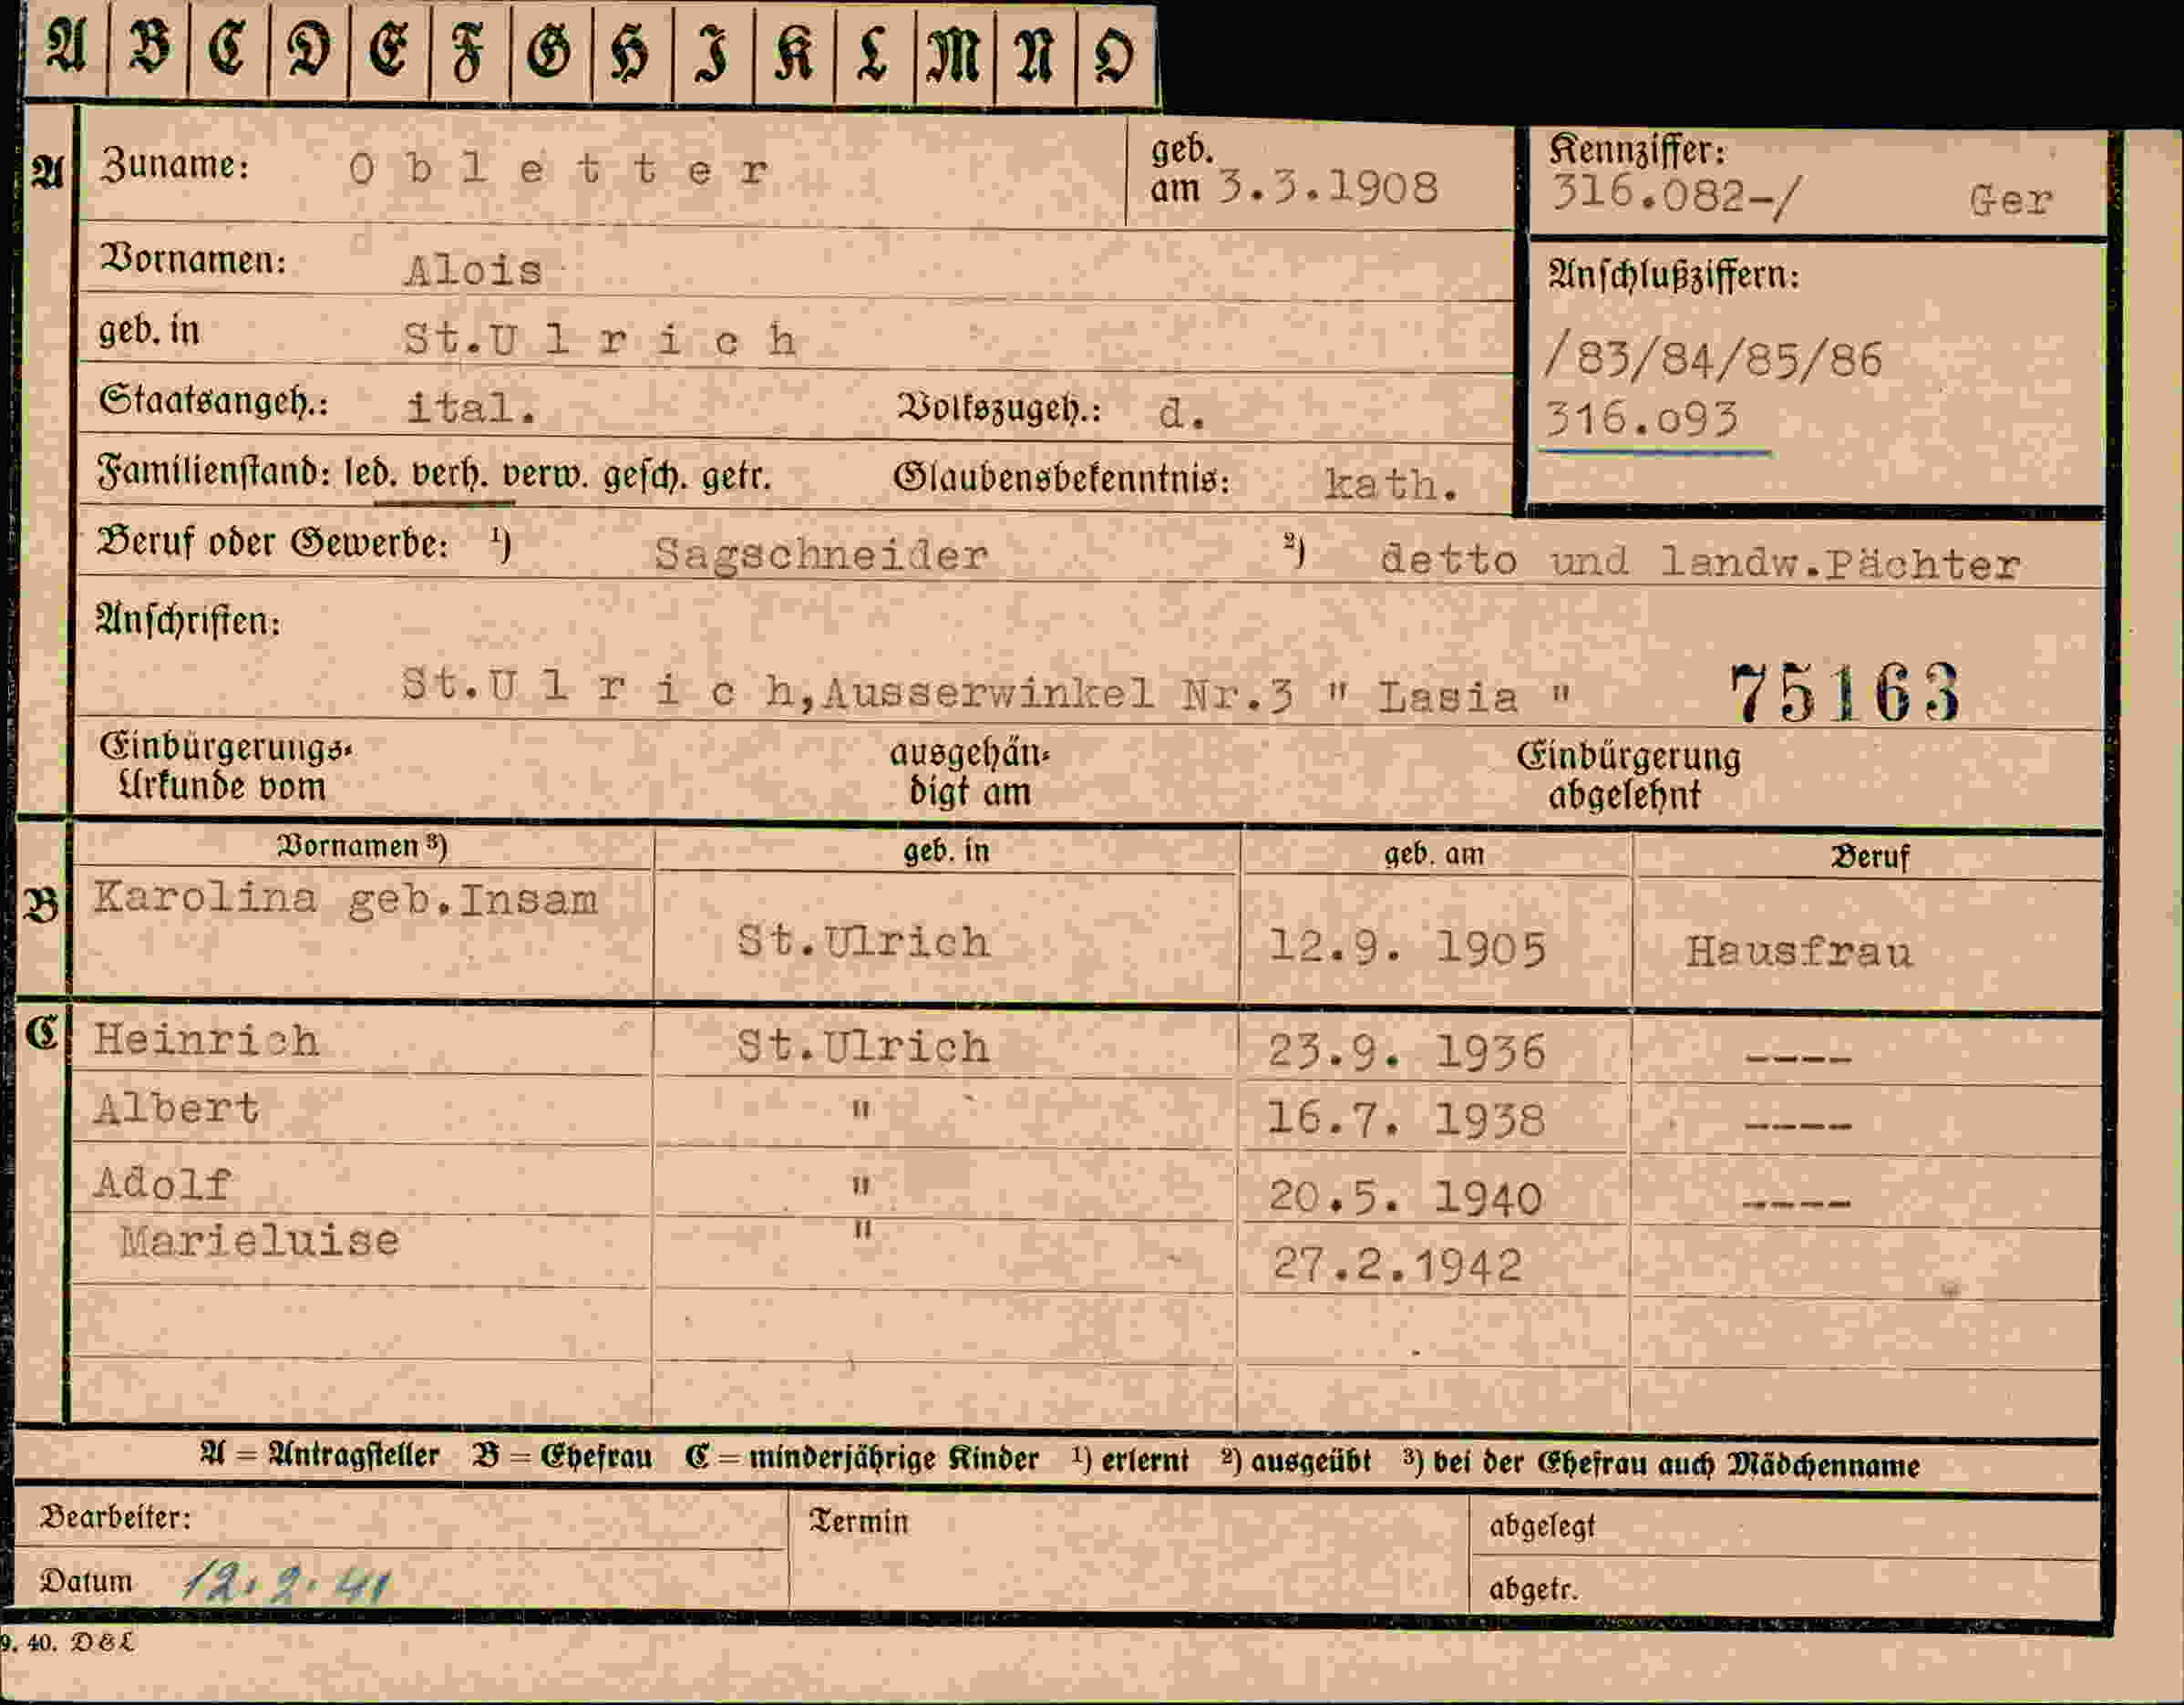 A B C D E F G H I K L M N O
A Zuname: O b l e t t e r geb. am 3.3.1908
Kennziffer: 316.082-/ Ger
Vornamen: Alois
Anschlußziffern:
geb. in St.U l r i c h
/83/84/85/86
Staatsangeh.: ital. Volkszugeh.: d.
316.o93
Familienstand: led. verh. verw. gesch. getr. Glaubensbekenntnis: kath.
Beruf oder Gewerbe: ¹) Sagschneider ²) detto und landw.Pächter
Anschriften:
St.U l r i c h,Ausserwinkel Nr.3 " Lasia " 75163
Einbürgerungs- ausgehän- Einbürgerung
Urkunde vom digt am abgelehnt
Vornamen ³) geb. in geb. am Beruf
B Karolina geb.Insam
St.Ulrich 12.9. 1905 Hausfrau
C Heinrich St.Ulrich 23.9. 1936 ----
Albert " 16.7. 1938 ----
Adolf " 20.5. 1940 ----
Marieluise " 27.2.1942
A = Antragsteller B = Ehefrau C = minderjährige Kinder ¹) erlernt ²) ausgeübt ³) bei der Ehefrau auch Mädchenname
Bearbeiter: Termin abgelegt
Datum 12.2.41 abgetr.
9. 40. D&L